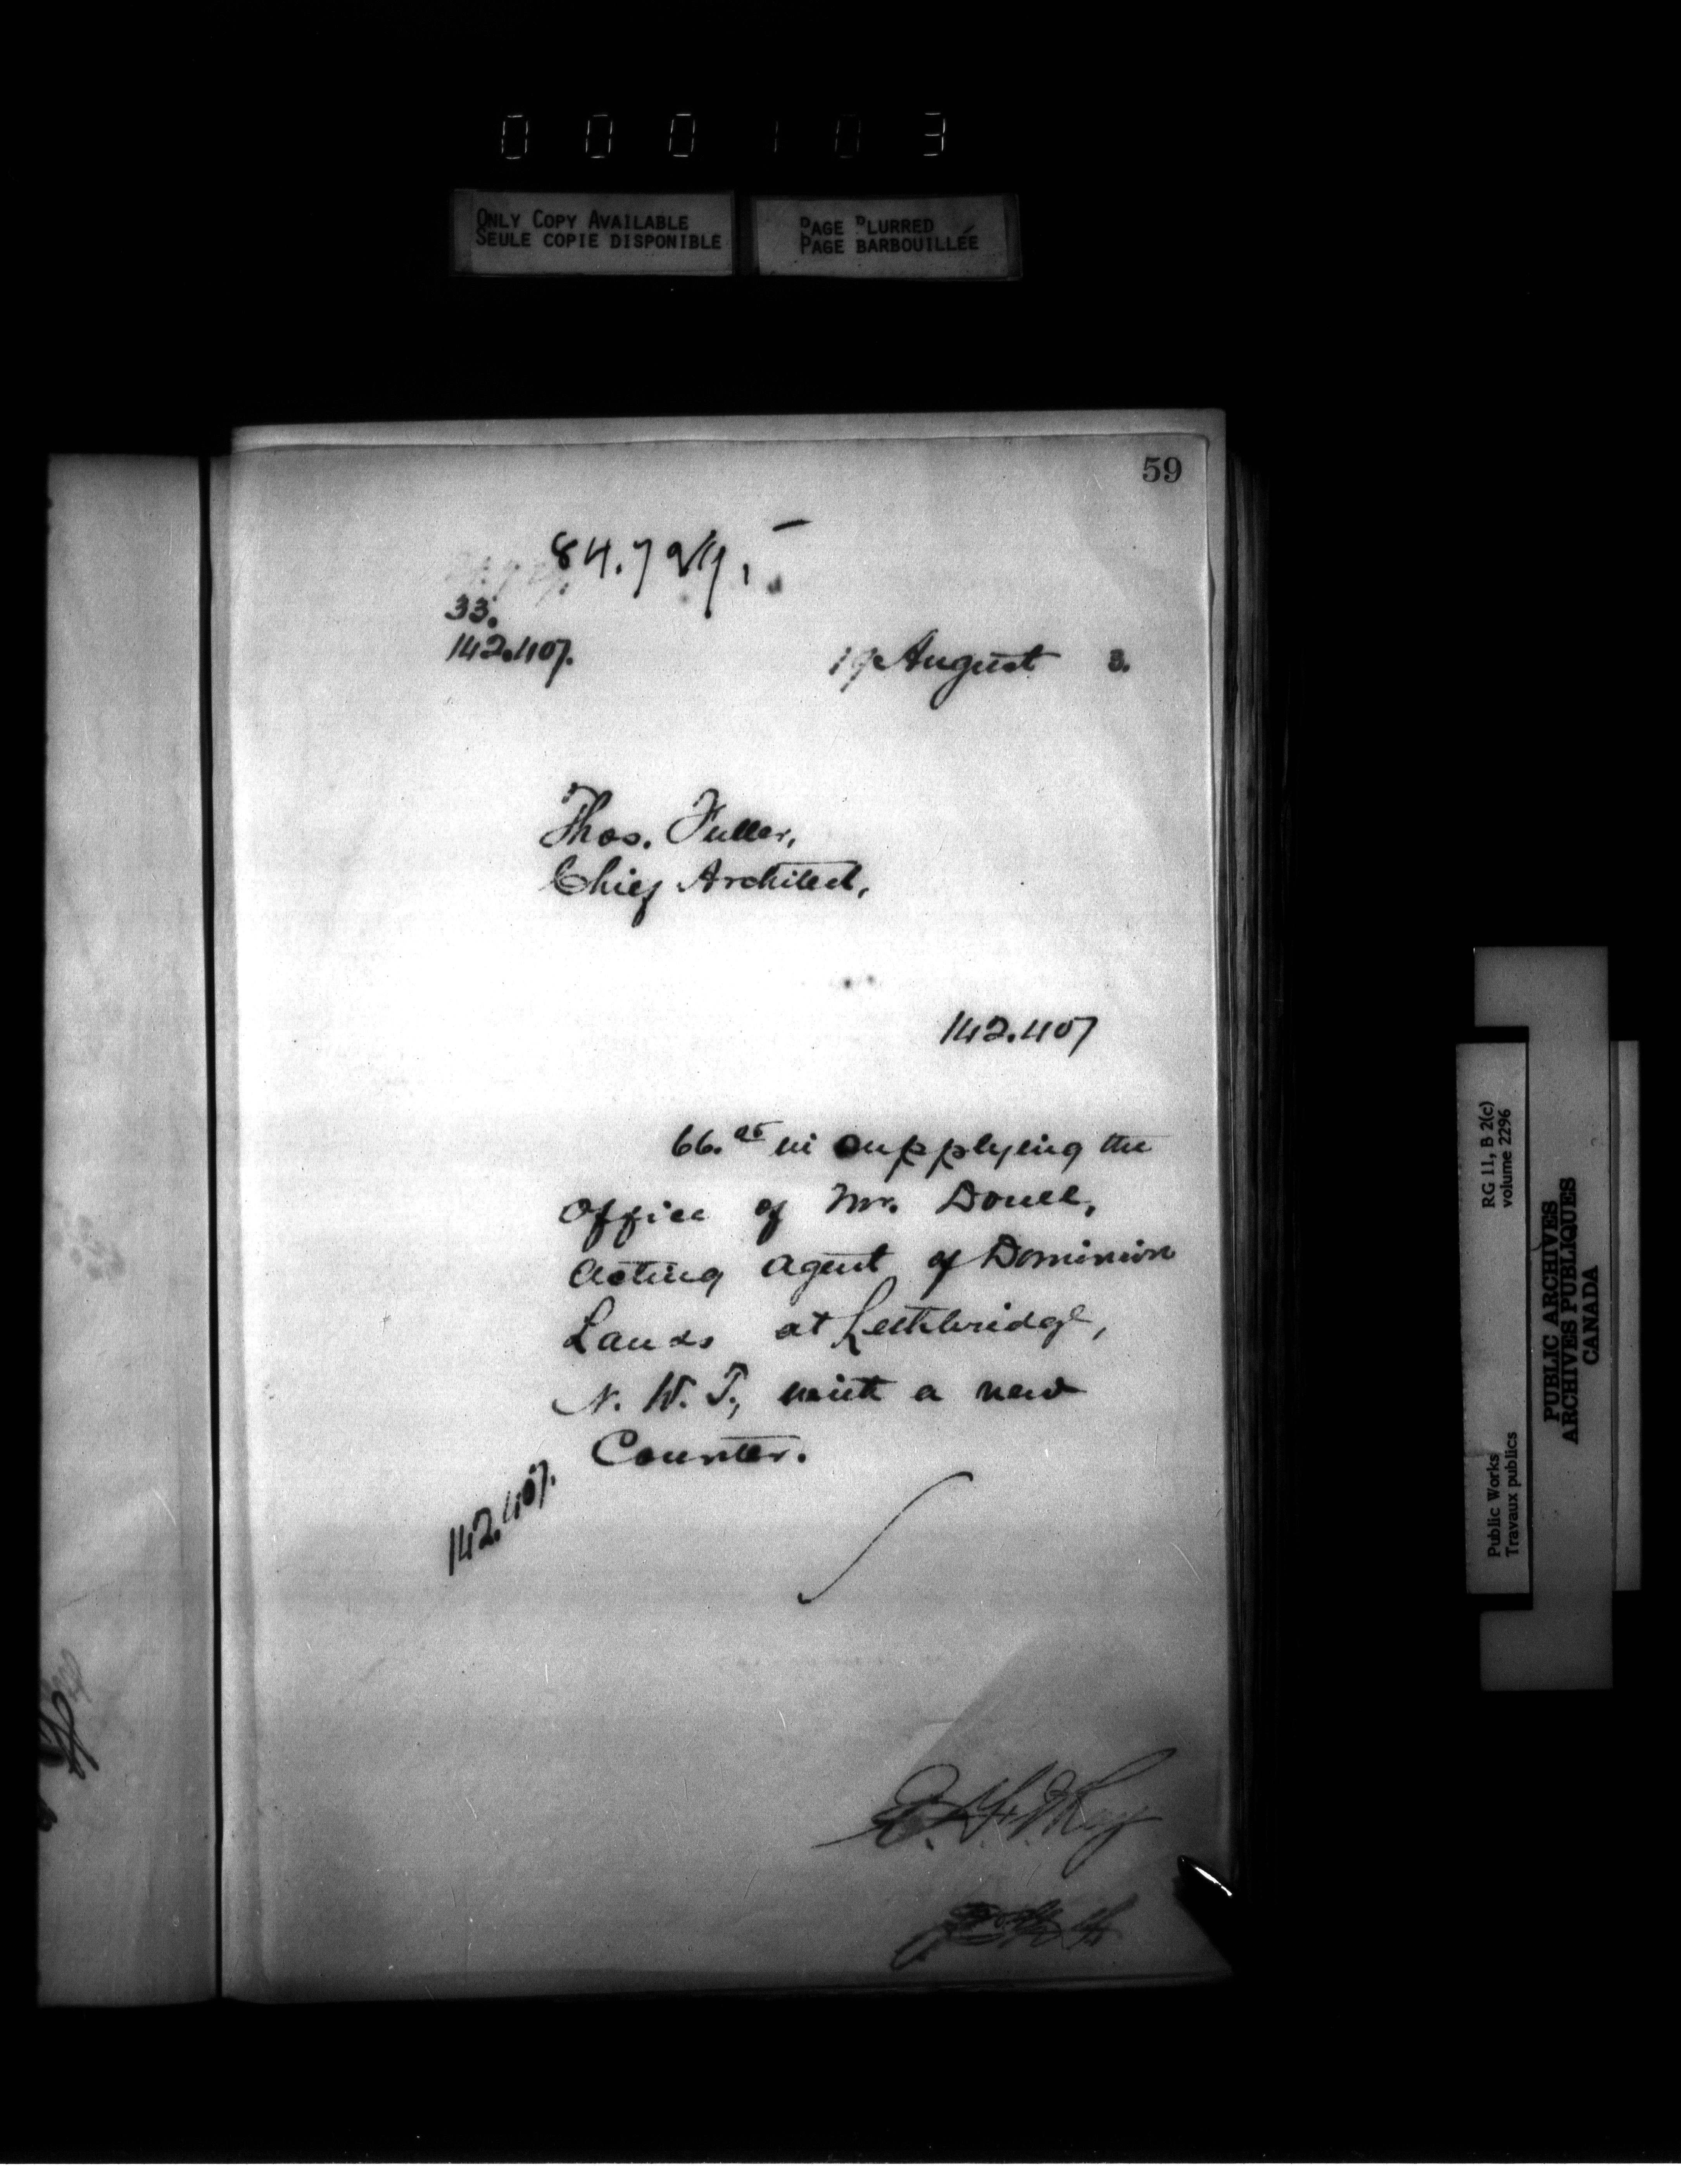 000103
ONLY COPY AVAILABLE
SEULE COPIE DISPONIBLE
PAGE BLURRED
PAGE BARBOUILLÉE
59
33.
142.407.
19 August 3.
Thos. Fuller,
Chief Architect,
142.407
66.25 in supplying the
Office of Mr.
Acting Agent of Dominion
Lands at Lethbridge,
N. W. T., with a new
Counter.
142.407.
RG 11, B 2(c)
volume 2296
Public Works
Travaux publics
PUBLIC ARCHIVES
ARCHIVES PUBLIQUES
CANADA